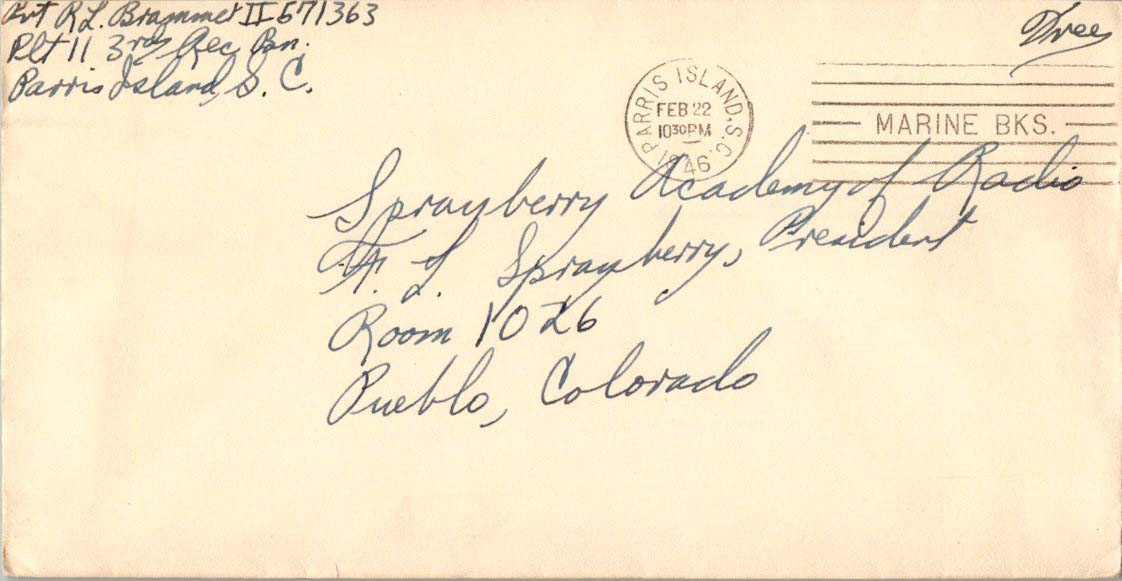 Pvt R L. Brammer II 671363
Plt 11 3rd Rec Bn.
Parris Island, S. C.
Free
PARRIS ISLAND, S.C.
FEB 22
10 30 PM
1946
MARINE BKS.
Sprayberry Academy of Radio
F. L. Sprayberry, President
Room 1026
Pueblo, Colorado